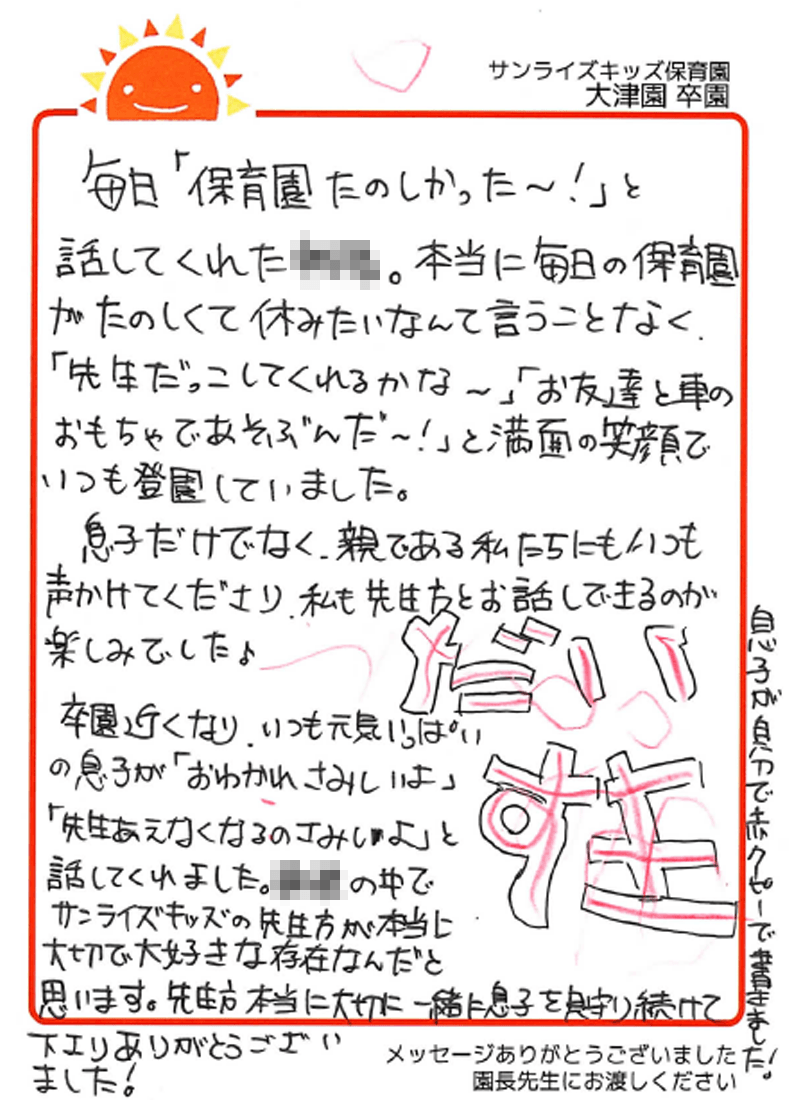 サンライズキッズ保育園
大津園 卒園
毎日「保育園たのしかった〜!」と
話してくれた 。本当に毎日の保育園
がたのしくて休みたいなんて言うことなく、
「先生だっこしてくれるかな〜」「お友達と車の
おもちゃであそぶんだ〜!」と満面の笑顔で
いつも登園していました。
息子だけでなく、親である私たちにもいつも
声かけてくださり、私も先生方とお話しできるのが
楽しみでした♪
だい
すき
卒園近くなり、いつも元気いっぱい
の息子が「おわかれさみしいよ」
「先生あえなくなるのさみしいよ」と
話してくれました。 の中で
サンライズキッズの先生方が本当に
大切で大好きな存在なんだと
思います。先生方本当に大切に一緒に息子を見守り続けて
下さりありがとうござい
ました!
息子が自分で赤クレヨンで書きました!
メッセージありがとうございました
園長先生にお渡しください